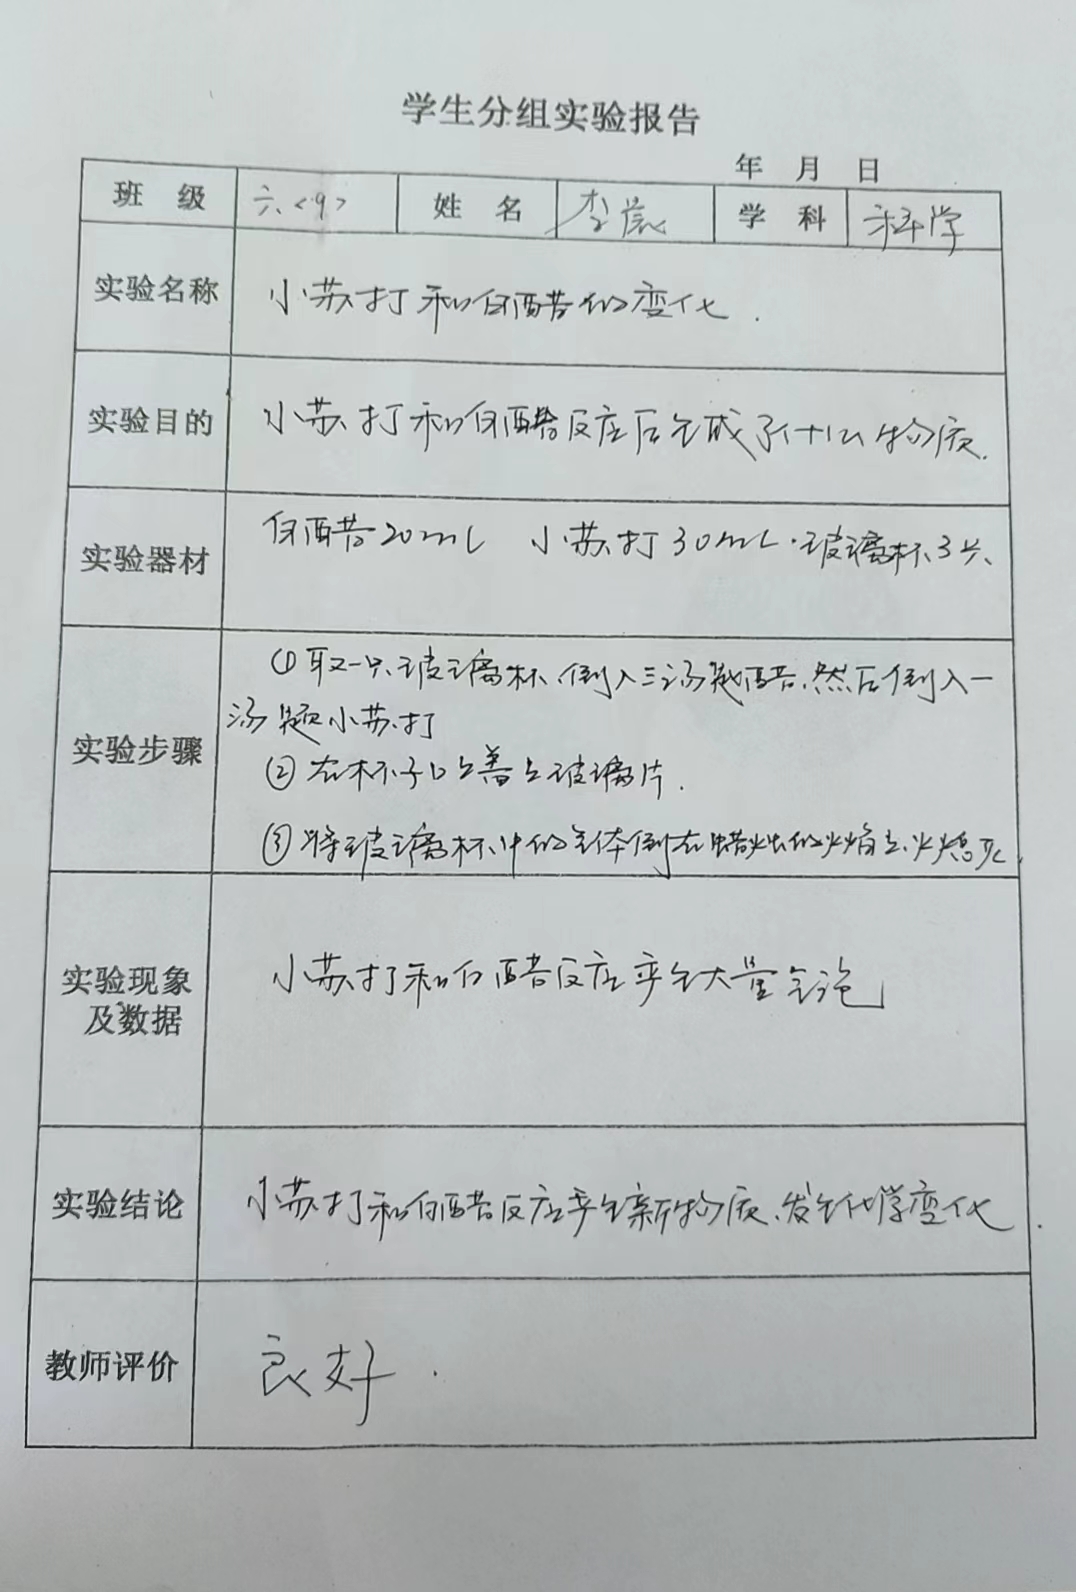 学生分组实验报告
年 月 日
班 级 六<9> 姓 名 李晨 学 科 科学
实验名称 小苏打和白醋的变化.
实验目的 小苏打和白醋反应后生成了什么物质.
实验器材 白醋20mL 小苏打30mL.玻璃杯3只
实验步骤 ①取一只玻璃杯,倒入三汤匙醋,然后倒入一
汤匙小苏打
②在杯子口上盖上玻璃片.
③将玻璃杯中的气体倒在蜡烛的火焰上,火熄灭
实验现象
及数据 小苏打和白醋反应产生大量气泡
实验结论 小苏打和白醋反应产生新物质,发生化学变化.
教师评价 良好.